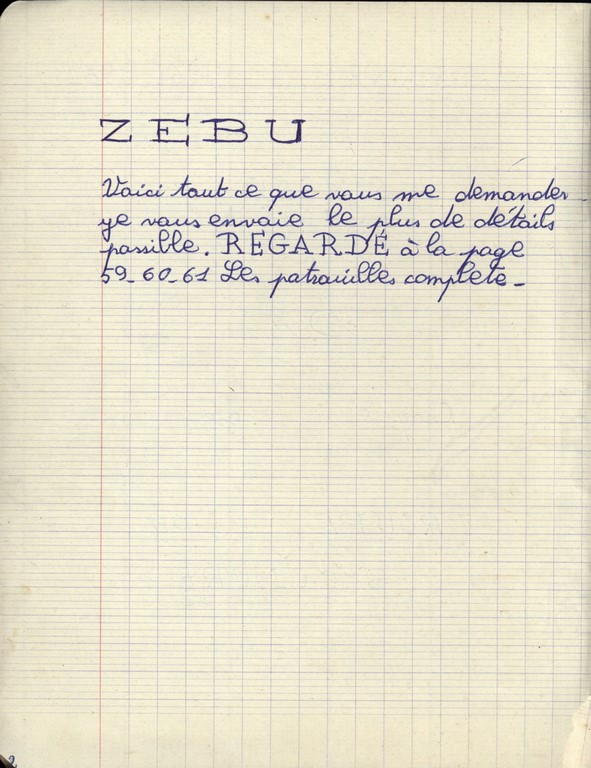 ZEBU
Voici tout ce que vous me demander
je vous envoie le plus de détails
possible. REGARDÉ à la page
59_60_61 Les patrouilles complete_
2